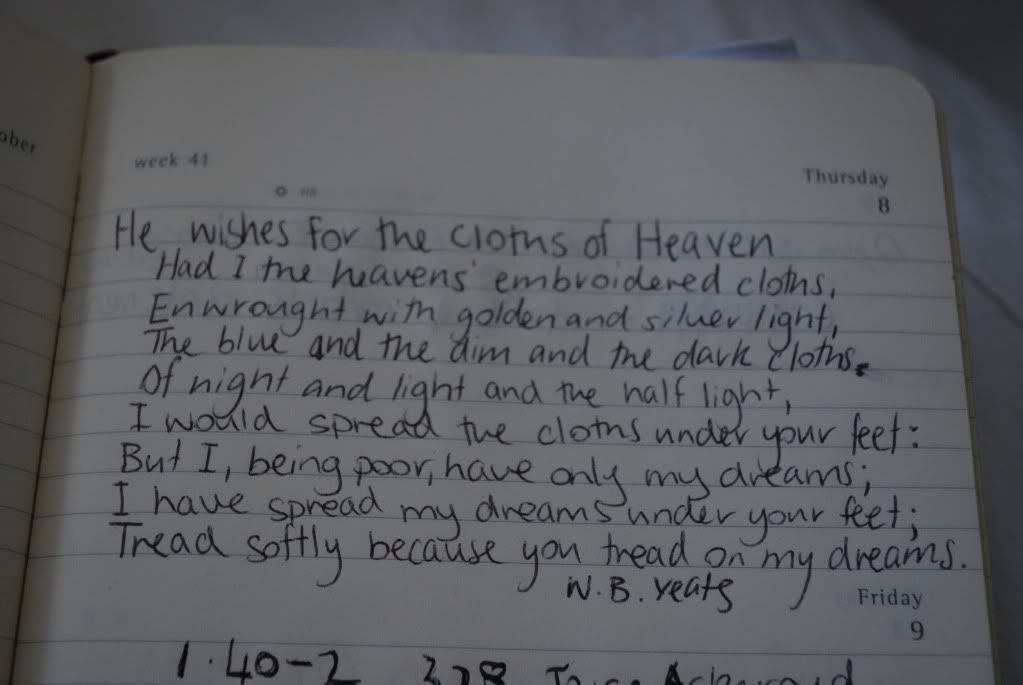 ober
week 41
Thursday
8
He wishes for the cloths of Heaven
Had I the heavens' embroidered cloths,
Enwrought with golden and silver light,
The blue and the dim and the dark cloths.
Of night and light and the half light,
I would spread the cloths under your feet:
But I, being poor, have only my dreams;
I have spread my dreams under your feet;
Tread softly because you tread on my dreams.
W.B. Yeats
Friday
9
1.40-2